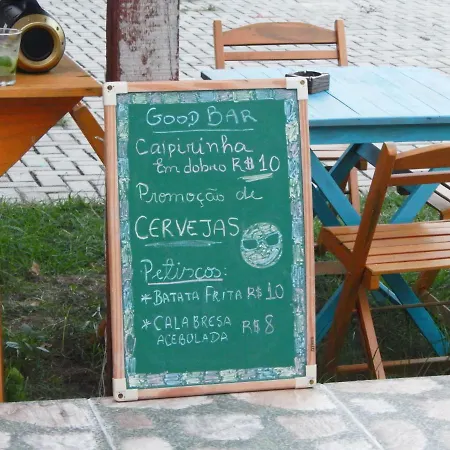 GOOD BAR
Caipirinha
Em dobro R$10
Promoção de
CERVEJAS
Petiscos:
* BATATA FRITA R$10
* CALABRESA R$8
ACEBOLADA